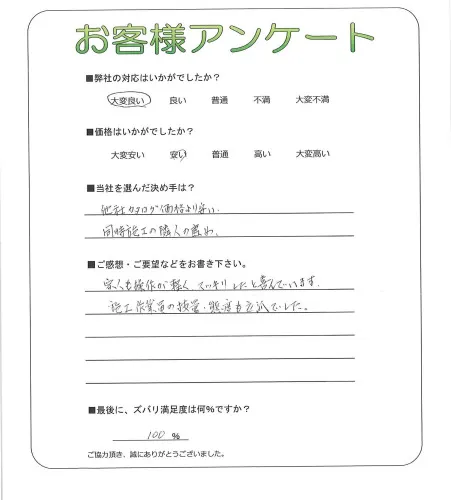 お客様アンケート
■弊社の対応はいかがでしたか？
大変良い 良い 普通 不満 大変不満
■価格はいかがでしたか？
大変安い 安い 普通 高い 大変高い
■当社を選んだ決め手は？
他社カタログ価格より安い.
同時施工の隣人の薦め.
■ご感想・ご要望などをお書き下さい。
家人も操作が軽く スッキリしたと喜んでいます.
施工作業員の技量・態度も立派でした。
■最後に、ズバリ満足度は何％ですか？
100 ％
ご協力頂き、誠にありがとうございました。